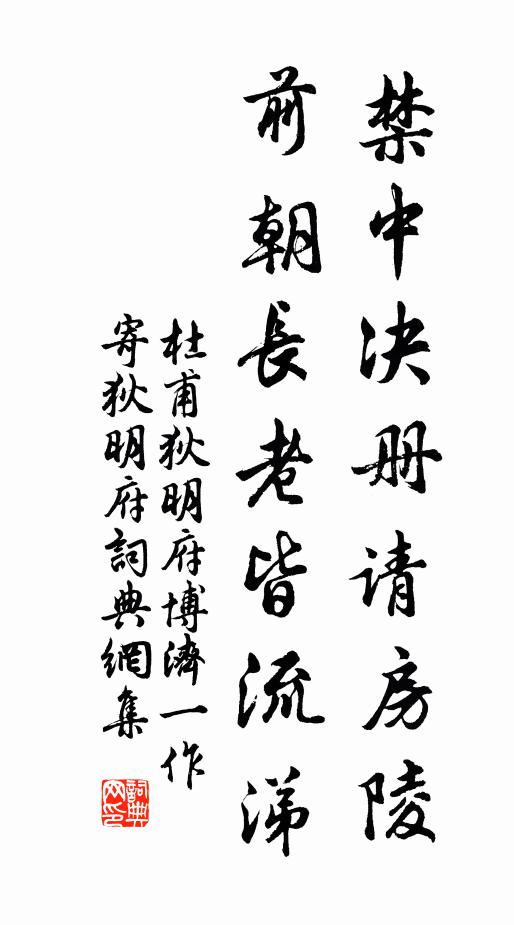 禁中决册请房陵
前朝長老皆流涕
杜甫狄明府博濟一作
寄狄明府詞典網集
詞典
网印